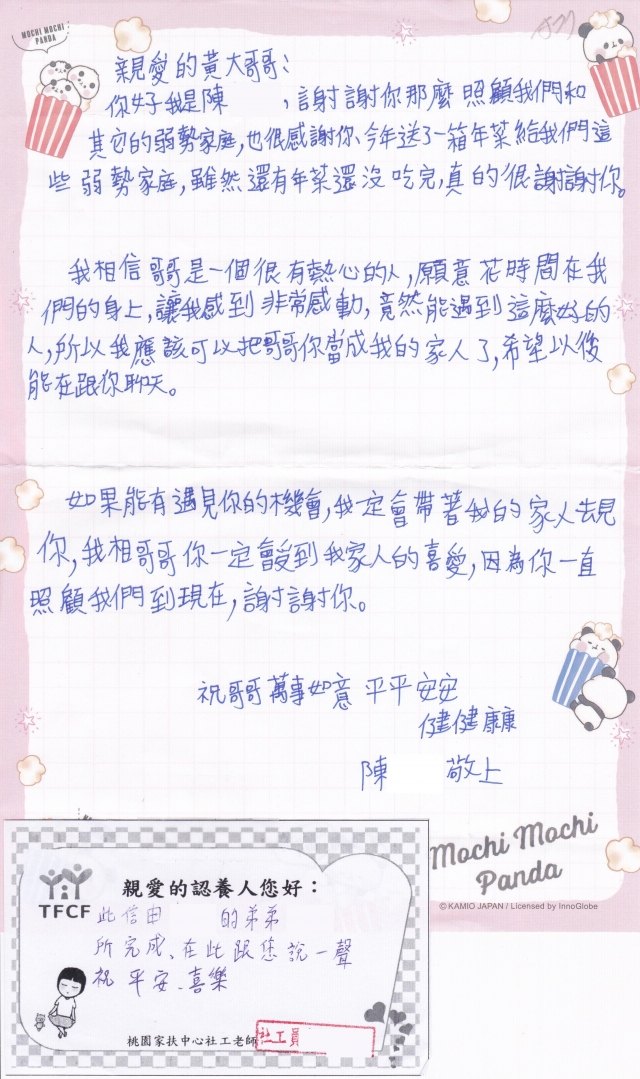 MOCHI MOCHI
PANDA
親愛的黃大哥哥:
你好我是陳 ,謝謝你那麼照顧我們和
其它的弱勢家庭,也很感謝你、今年送了一箱年菜給我們這
些弱勢家庭,雖然還有年菜還沒吃完,真的很謝謝你。
我相信哥哥是一個很有熱心的人,願意花時間在我
們的身上,讓我感到非常感動,竟然能遇到這麼好的
人,所以我應該可以把哥哥你當成我的家人了,希望以後
能在跟你聊天。
如果能有遇見你的機會,我一定會帶著我的家人去見
你,我相哥哥你一定會受到我家人的喜愛,因為你一直
照顧我們到現在,謝謝你。
祝哥哥萬事如意 平平安安
健健康康
陳 敬上
Mochi Mochi
Panda
© KAMIO JAPAN / Licensed by InnoGlobe
TFCF
親愛的認養人您好:
此信由 的弟弟
所完成、在此跟您說一聲
祝 平安、喜樂
桃園家扶中心社工老師
社工員